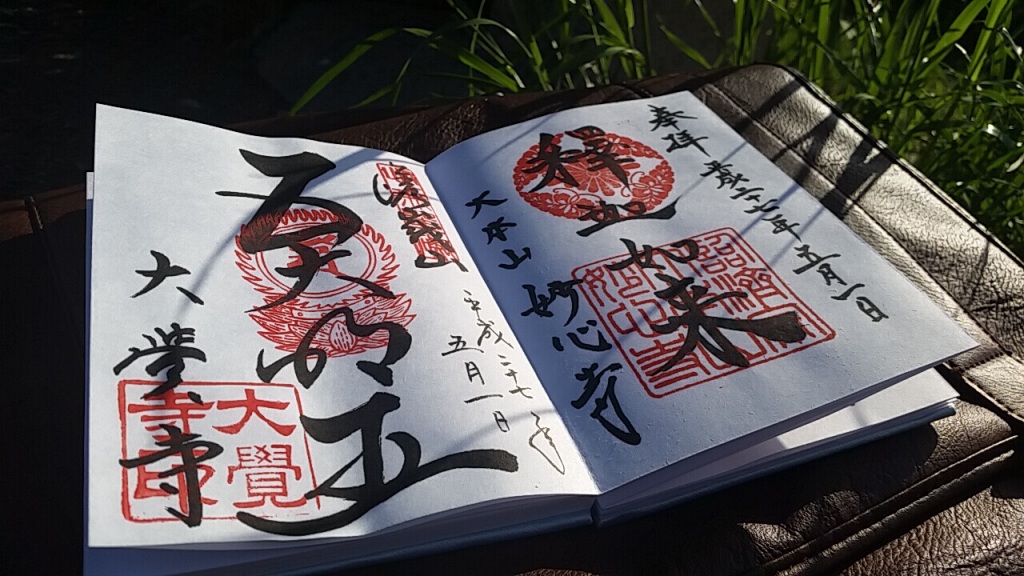 奉拝 平成二十七年 五月一日
釋迦如来
大本山
妙心寺
平成二十七年
五月一日
五大明王
大覺寺
大覺
寺印